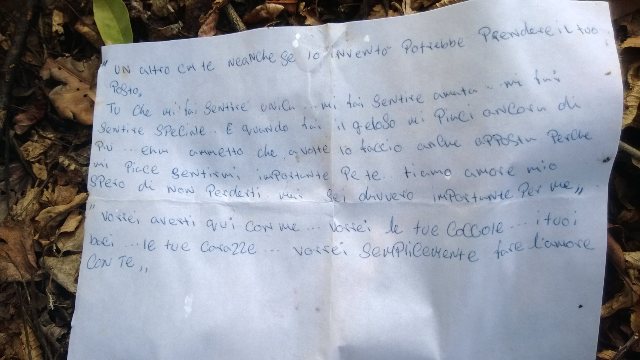 "UN altro come te neanche se lo invento potrebbe Prendere il tuo
Posto,
Tu che mi fai sentire unica... mi fai sentire amata... mi fai
sentire speciale. E quando fai il geloso mi piaci ancora di
più... ehm ammetto che a volte lo faccio anche apposta perche
mi piace sentirmi importante Pe te. ti amo amore mio
spero di non perderti mai sei davvero importante per me"
"vorrei averti qui con me... vorrei le tue coccole... i tuoi
baci... le tue carezze... vorrei semplicemente fare l'amore
con te"